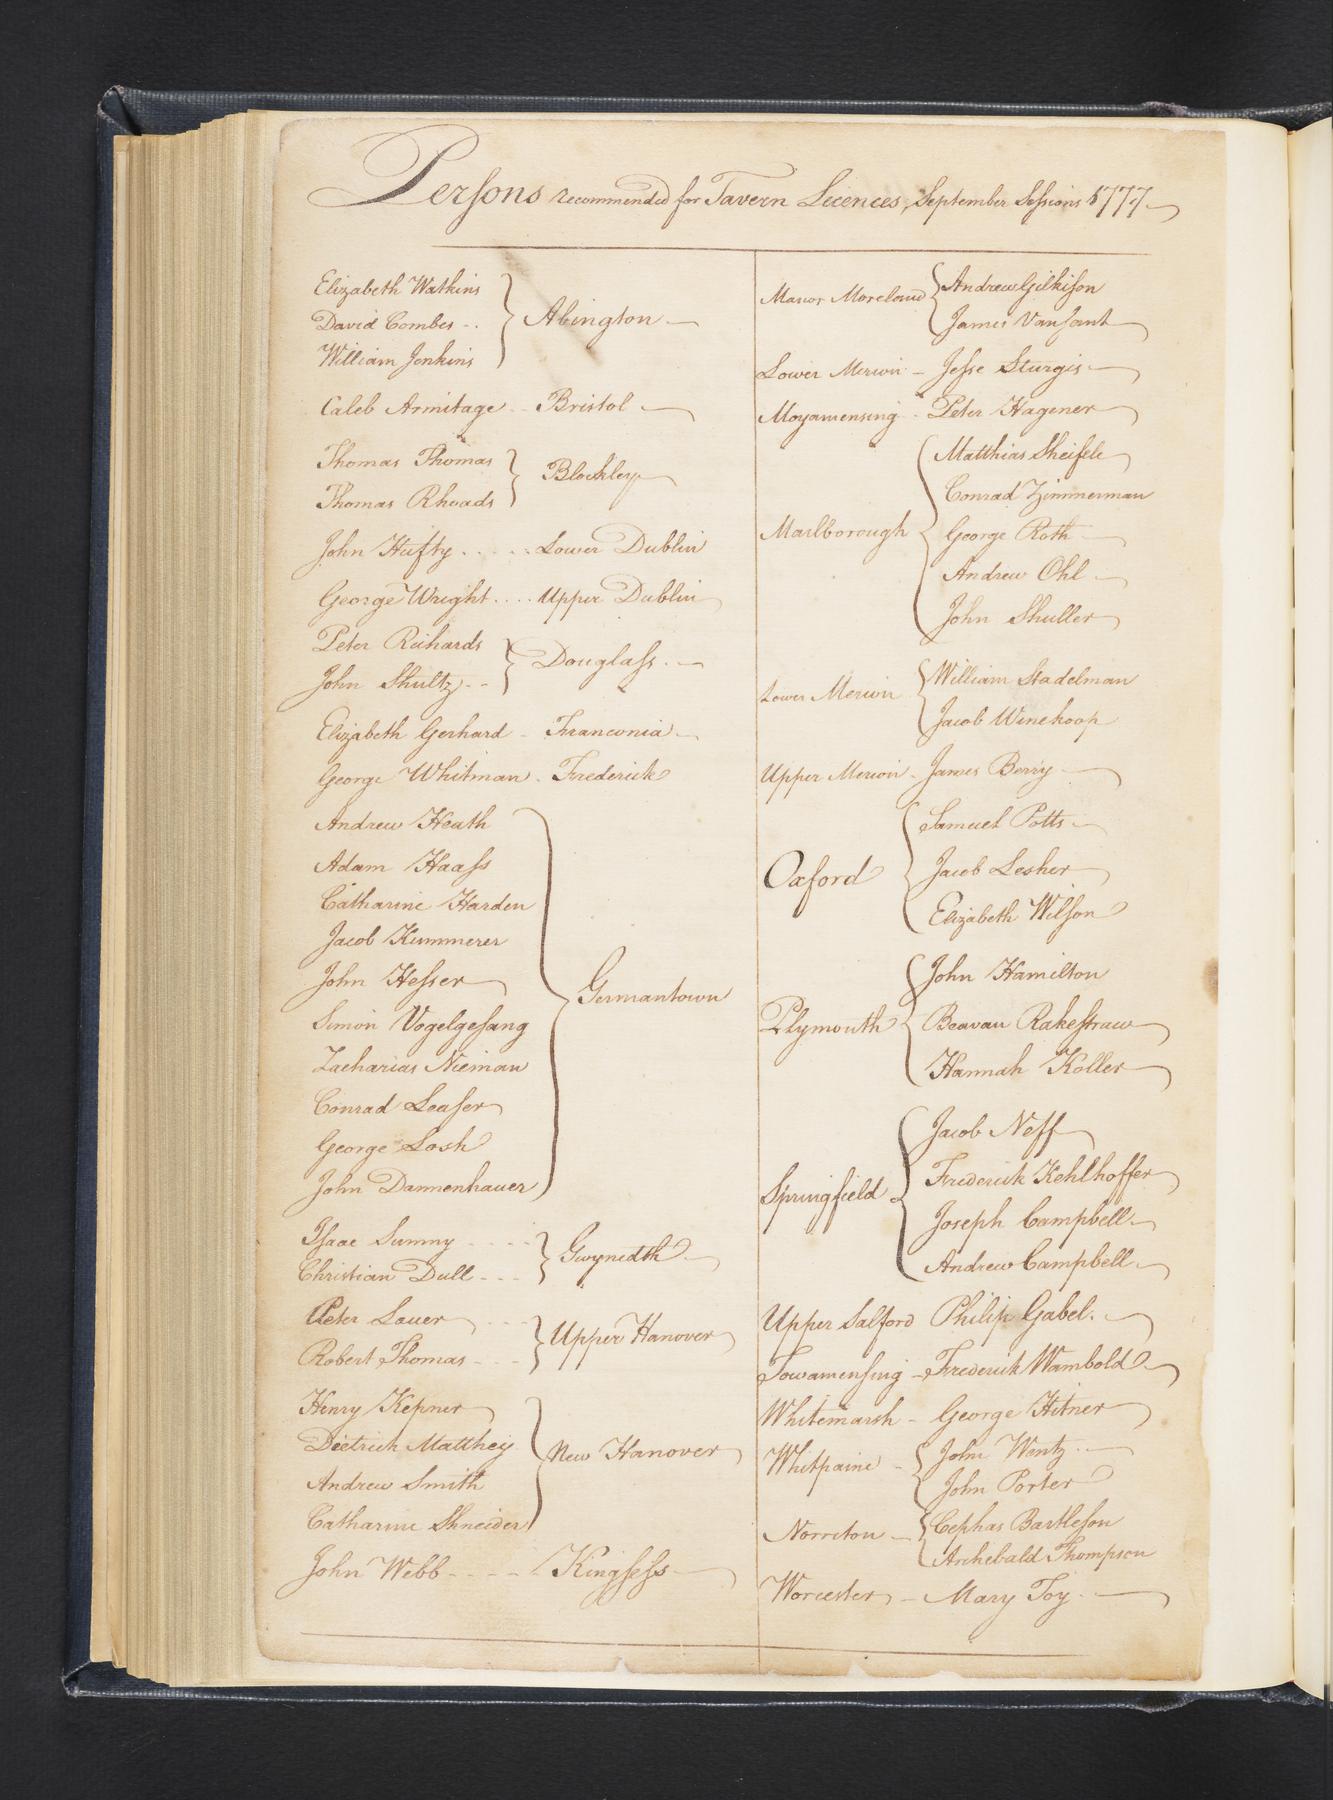 Persons recommended for Tavern Licences, September Sessions 1777
Elizabeth Watkins
David Combes
William Jenkins
Abington
Caleb Armitage Bristol
Thomas Thomas
Thomas Rhoads
Blockley
John Hufty ..... Lower Dublin
George Wright .... Upper Dublin
Peter Richards
John Shultz
Douglass
Elizabeth Gerhard - Franconia
George Whitman - Frederick
Andrew Heath
Adam Haass
Catharine Harden
Jacob Kummerer
John Hesser
Simon Vogelgesang
Zacharias Nieman
Conrad Leaser
George Losh
John Dannenhauer
Germantown
Isaac Sumny
Christian Dull
Gwynedth
Peter Lauer
Robert Thomas
Upper Hanover
Henry Kepner
Dietrich Matthey
Andrew Smith
Catharine Shneider
New Hanover
John Webb - - - - Kingsess
Manor Moreland
Andrew Gilkison
James Vansant
Lower Merion - Jesse Sturgis
Moyamensing - Peter Hagener
Marlborough
Matthias Sheifele
Conrad Zimmerman
George Roth
Andrew Ohl
John Shuller
Lower Merion
William Stadelman
Jacob Winehoop
Upper Merion - James Berry
Oxford
Samuel Potts
Jacob Lesher
Elizabeth Wilson
Plymouth
John Hamilton
Beavan Rakestraw
Hannah Koller
Springfield
Jacob Neff
Frederick Kehlhoffer
Joseph Campbell
Andrew Campbell
Upper Salford Philip Gabel.
Towamensing - Frederick Wambold
Whitemarsh - George Hitner
Whitpaine
John Wentz
John Porter
Norriton
Cephas Bartleson
Archebald Thompson
Worcester - Mary Toy